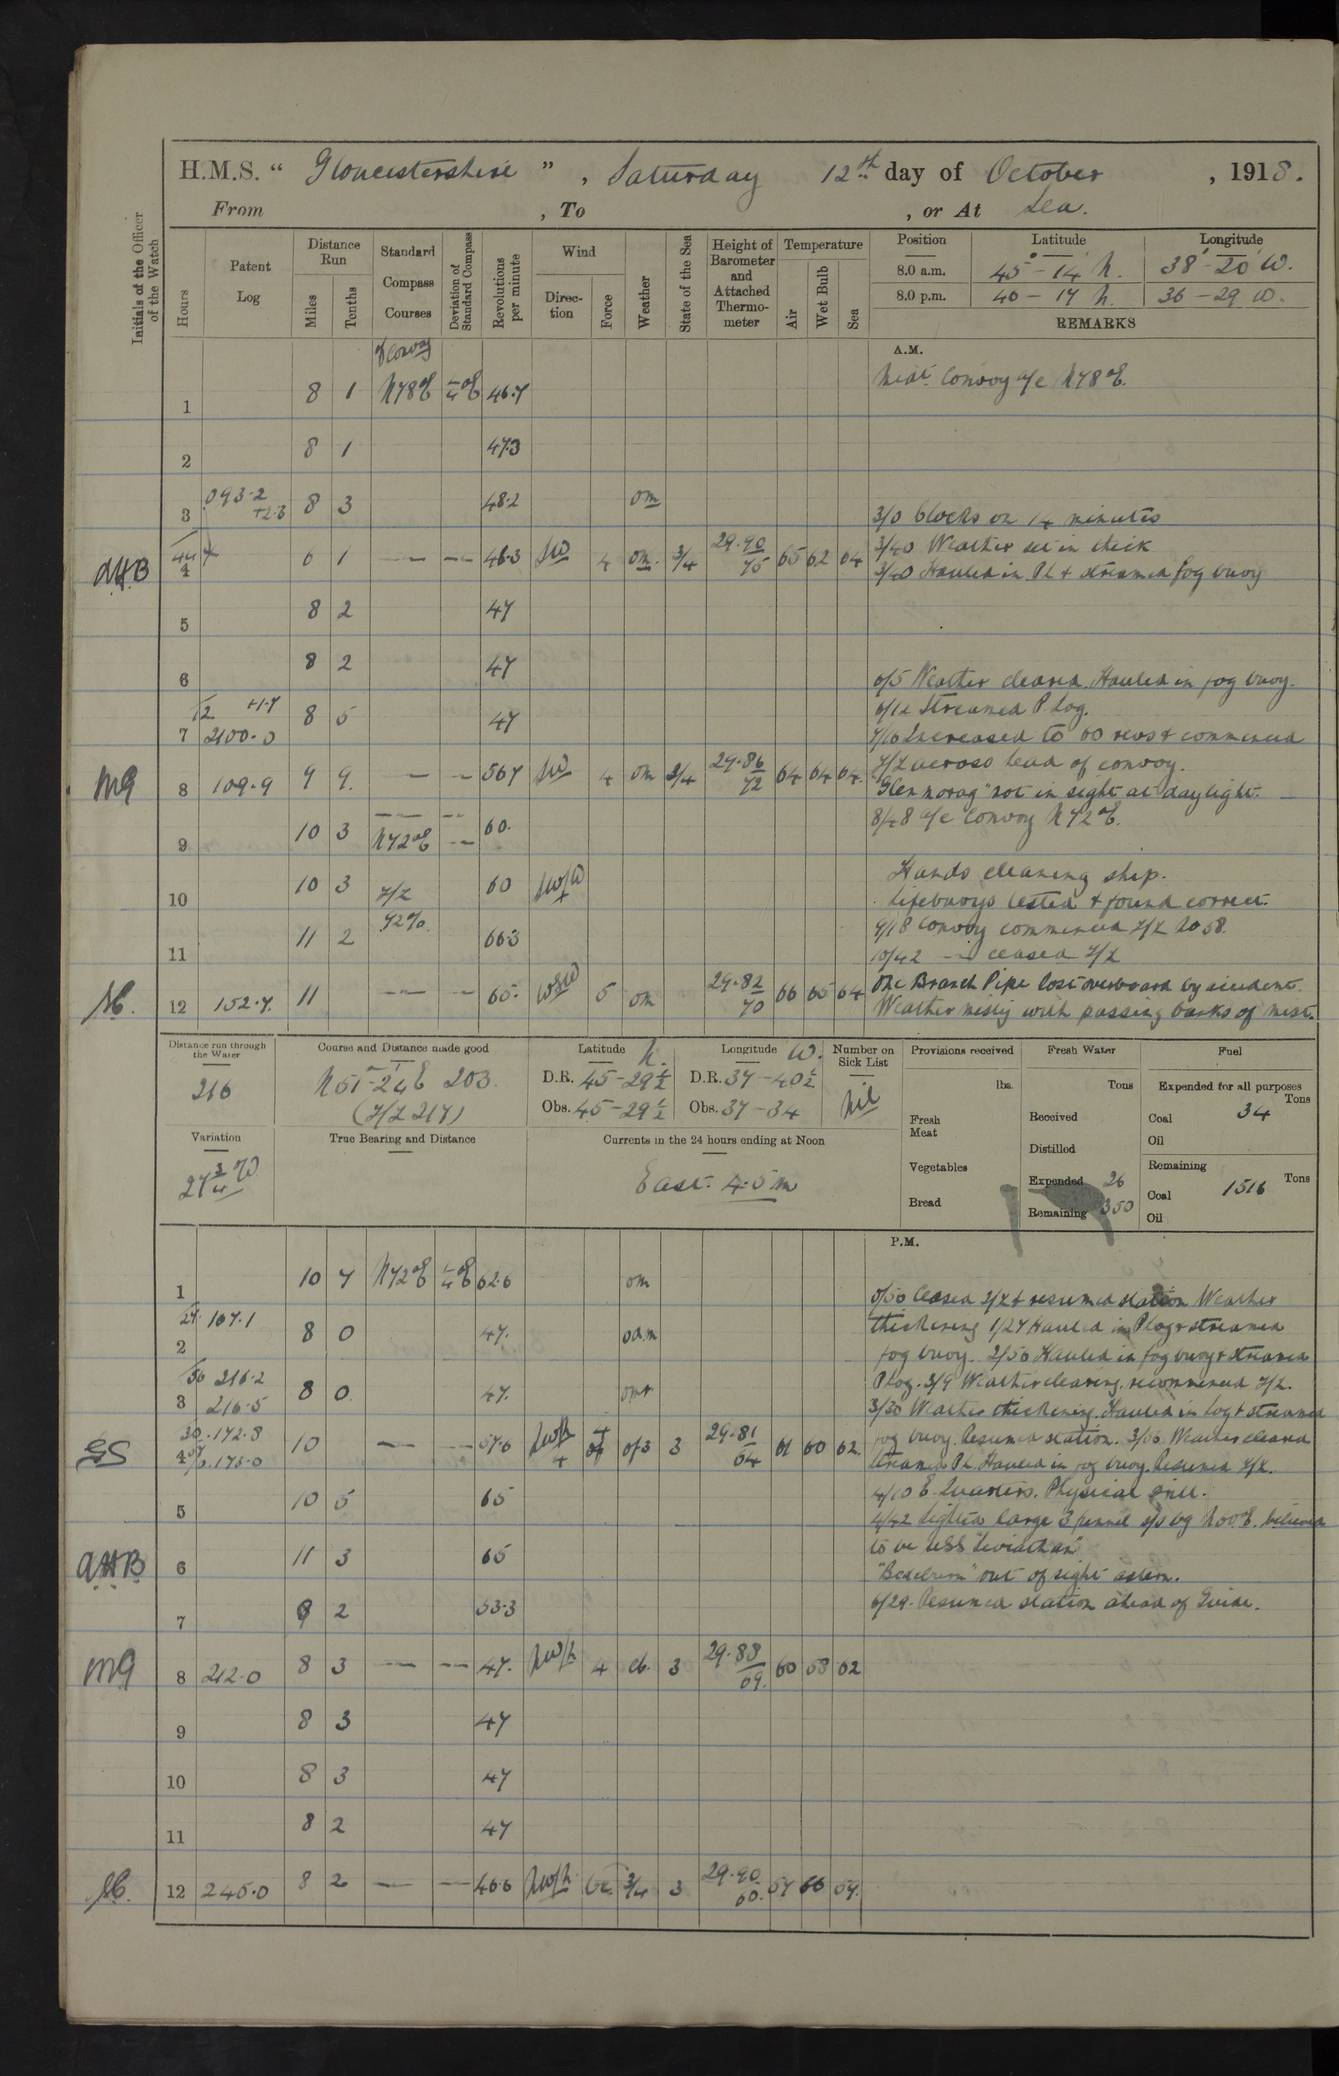 H.M.S. “ Gloucestershire ” , Saturday 12th day of October , 1918.
From , To , or At Sea.
Initials of the Officer of the Watch
Hours
Patent Log
Distance Run
Miles
Tenths
Standard Compass Courses
Deviation of Standard Compass
Revolutions per minute
Wind
Direction
Force
Weather
State of the Sea
Height of Barometer and Attached Thermometer
Temperature
Air
Wet Bulb
Sea
Position Latitude Longitude
8.0 a.m. 45 - 14 N. 38 - 20 W.
8.0 p.m. 46 - 17 N. 36 - 29 W.
REMARKS
A.M.
1 8 1 N78°E 46.7 Convoy a/c N78°E.
2 8 1 47.3
3 093.2 +2.3 8 3 48.2 om
3/0 Clocks on 14 minutes
AHB 4 6 1 46.3 SW 4 om. 3/4 29.90 75 65 62 64 3/40 Weather set in thick
3/40 Hauled in PL & streamed fog buoy
5 8 2 47
6 8 2 47
6/5 Weather cleared. Hauled in fog buoy.
6/12 Streamed P Log.
7 12 +1.7 2100.0 8 5 47
7/10 Increased to 60 revs & commenced
Z/Z across head of convoy.
MG 8 109.9 9 9 567 SW 4 om 3/4 29.86 72 64 64 64
"Glenmorag" not in sight at daylight.
8/48 a/c Convoy N72°E.
9 10 3 N72°E 60.
Hands cleaning ship.
10 10 3 Z/Z 60 SW/W
Lifebuoys tested & found correct.
11 11 2 72% 66.3
9/18 Convoy commenced Z/Z No 58.
10/42 ceased Z/Z
12 152.7. 11 65. WSW 5 om 29.82 70 66 65 64 One Branch Pipe lost overboard by accident.
Weather misty with passing banks of mist.
Distance run through the Water
216
Course and Distance made good
N51-24E 203.
(Z/Z 217)
Latitude N.
D.R. 45-29½
Obs. 45-29½
Longitude W.
D.R. 37-40½
Obs. 37-34
Number on Sick List
Nil
Provisions received
lbs.
Fresh Meat
Vegetables
Bread
Fresh Water
Tons
Received
Distilled
Expended 26
Remaining 350
Fuel
Expended for all purposes
Tons
Coal 34
Oil
Remaining
Tons
Coal 1516
Oil
Variation
27¾W
True Bearing and Distance
Currents in the 24 hours ending at Noon
East. 4.5 m
P.M.
1 10 7 N72°E 62.6 om
0/50 Ceased Z/Z & resumed station Weather
2 27. 167.1 8 0 47. odm
thickening 1/27 Hauled in P Log & streamed
fog buoy. 2/56 Hauled in fog buoy & streamed
3 56 216.2 216.5 8 0 47.
P Log. 3/9 Weather clearing, recommenced Z/Z.
3/30 Weather thickening. Hauled in Log & streamed
GS 4 30. 172.8 173.0 10 57.6 3 29.81 64 61 60 62
fog buoy. Resumed station. Weather cleared
Streamed PL. Hauled in fog buoy. Resumed Z/Z.
5 10 5 65
4/10 E. Quarters. Physical drill.
4/42 Sighted large 3 funnel s/s
AHB 6 11 3 65
to be USS "Leviathan"
out of sight astern.
7 9 2 53.3
6/29. Resumed station ahead of Guide.
MG 8 212.0 8 3 47. NW/N 4 cb. 3 29.88 69. 60 58 62
9 8 3 47
10 8 3 47
11 8 2 47
12 245.0 8 2 46.6 NW/N 3/4 3 29.90 60. 57 59.